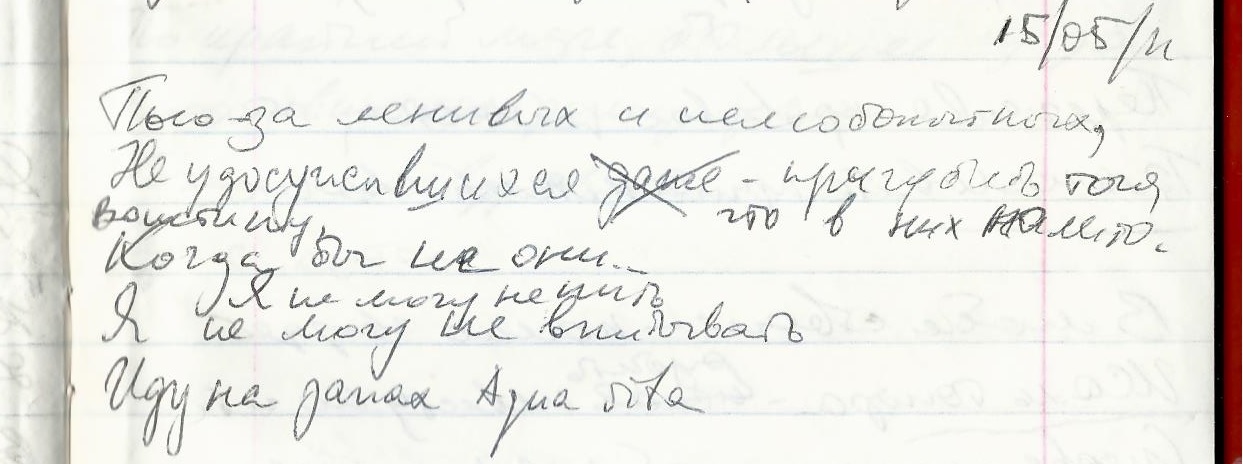 15/05/11
Пью за ленивых и нелюбопытных,
Не удосужившихся даже - пригубить того,
воистину, что в них налито.
Когда бы не они...
Я не могу не пить
Я не могу не впитывать
Иду на запах Aqua vita